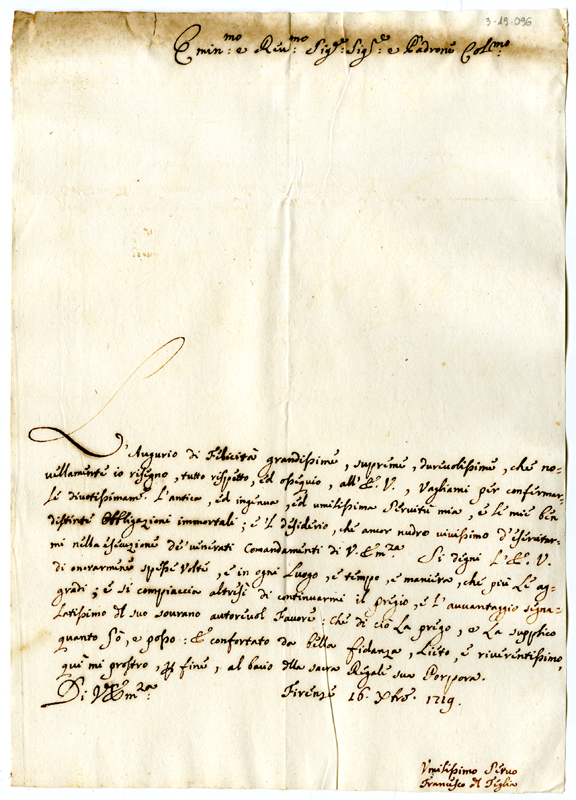 3-19-096
Emin:mo e Reu:mo Sig:re Sig:re e Padrone Col:mo
L'Augurio di Felicità grandissime, supreme, durevolissime, che no-
vellamente io rasegno, tutto rispetto, ed ossequio, all' E. V., vagliami per confermar-
Le divotissimame. L'antica, ed ingenua, ed umilissima Servitù mia, e le mie ben
distinte Obbligazioni immortali; e 'l desiderio, che ancor nudro vivissimo d'esercitar-
mi nella esecuzione de' venerati Comandamenti di V. Em:za Si degni L'E. V.
di onorarmene spesse volte, e in ogni Luogo, e tempo, e maniera, che più Le ag-
gradi; e si compiaccia altresì di continuarmi il pregio, e L'avvantaggio segna-
latissimo del suo sourano autorevol Favore: che di ciò La prego, e La supplico
quanto sò, e posso: E confortato da bella fidanza, Lieto, e riverentissimo,
quì mi prostro, per fine, al bacio della sacra Regale sua Porpora.
Di V. Em:za Firenze 16. Xbre. 1719.
Vmilissimo Seruo
Francesco del Teglia